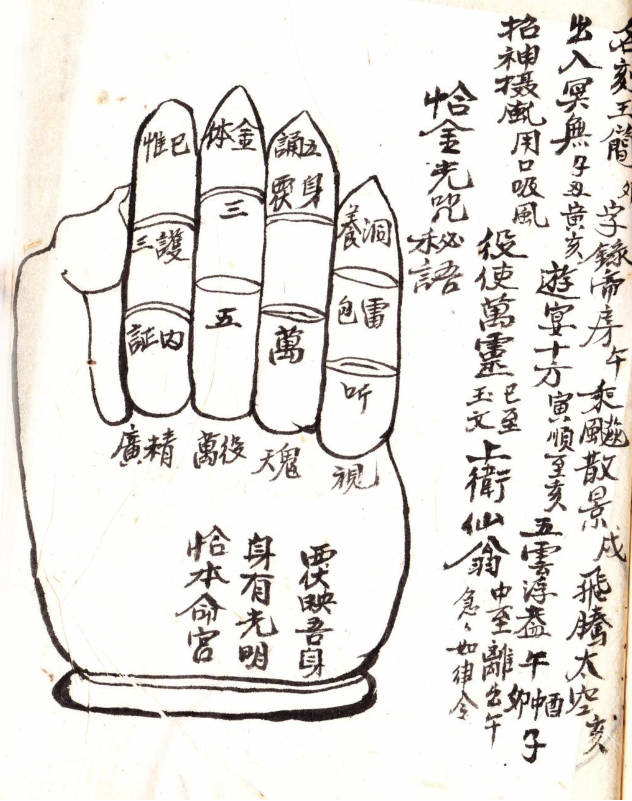 名刻玉簡夘字錄帝房午乘飈散景戍飛騰太空亥
出入冥無子丑黃亥遊宴十方寅順至亥五雲浮蓋午夘中酉子
招神攝風用口吸風役使萬靈巳至玉文上衛仙翁中至離出午急々如律令
恰金光咒秘語
洞養
雷包
听
視
五誦
身覆
萬
魂天
金体
三
五
役萬
巳惟
護三
内証
精廣
覆映吾身
身有光明
恰本命宮